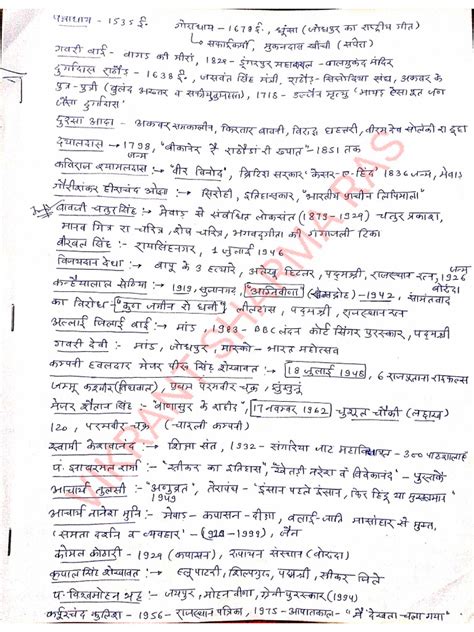 पन्नाधाय - 1535 ई. गोराधाय - 1679 ई., धूंसा (जोधपुर का राष्ट्रीय गीत)
↳ सफाईकर्मी, मुकनदास खींची (सपेरा)
गवरी बाई - वागड़ की मीरां, डूंगरपुर महारावल - बालमुकुंद मंदिर
दुर्गादास राठौड़ - 1638 ई., जसवंत सिंह मंत्री, राठौड़ - सिसोदिया संघ, अकबर के
पुत्र - पुत्री (बुलंद अख्तर व सफीयतुन्निसा), 1718 - उज्जैन मृत्यु 'मायड़ ऐसा पूत जण
जैसा दुर्गादास'
दुरसा आढ़ा - अकबर समकालीन, किरतार बावनी, विरुद छहत्तरी, वीरमदेव सोलंकी रा दूहा
दयालदास → 1798 जन्म, "बीकानेर रै राठौड़ां री ख्यात" - 1851 तक
कविराज श्यामलदास :→ "वीर विनोद", ब्रिटिश सरकार 'केसर-ए-हिन्द' 1836 जन्म, मेवाड़
गौरीशंकर हीराचंद ओझा :→ सिरोही, इतिहासकार, "भारतीय प्राचीन लिपिमाला"
बावजी चतुर सिंह :→ मेवाड़ से संबंधित लोकसंत (1879-1929) चतुर प्रकाश,
मानव मित्र रा चरित्र, शेष चरित्र, भगवद्गीता की गंगाजली टिका
बीरबल सिंह :→ रायसिंहनगर, 1 जुलाई 1946
विजयदान देथा :→ बापू के 3 हत्यारे, अलेखूं हिटलर, पद्मश्री, राजस्थान रत्न, जन्म 1926 बोरुंदा
कन्हैयालाल सेठिया :→ 1919, सुजानगढ़, "अग्निवीणा" (राजद्रोह) - 1942, सामंतवाद
का विरोध "कुण जमीन रो धणी" लीलटांस, पद्मश्री, राजस्थान रत्न
अल्लाह जिलाई बाई :→ मांड, BBC लंदन कोर्ट सिंगर पुरस्कार, पद्मश्री
गवरी देवी :→ मांड, जोधपुर, मास्को - भारत महोत्सव
कम्पनी हवलदार मेजर पीरू सिंह शेखावत :→ 18 जुलाई 1948, 6 राजपूताना राइफल्स
जम्मू कश्मीर (तिथवाल), प्रथम परमवीर चक्र, झुंझुनूं
मेजर शैतान सिंह :→ "बाणासुर के शहीद", 17 नवम्बर 1962, चुशूल चौकी (लद्दाख)
120, परमवीर चक्र (चारली कम्पनी)
स्वामी केशवानन्द :→ शिक्षा संत, 1932 - संगरिया जाट महाविद्यालय - 300 पाठशालाएं
पं. झाबरमल शर्मा :→ "सीकर का इतिहास", "खेतड़ी नरेश व विवेकानंद" - पुस्तकें
आचार्य तुलसी :→ "अणुव्रत" 1949, तेरापंथ - 'इंसान पहले इंसान, फिर हिंदू या मुसलमान'
आचार्य नानेश मुनि :→ मेवाड़ - कपासन - दीक्षा, बलाई-जाति मांसाहार से मुक्त,
'समता दर्शन व व्यवहार' - (1920-1999), जैन
कोमल कोठारी - 1929 (कपासन), रूपायन संस्थान (बोरुंदा)
कृपाल सिंह शेखावत :→ ब्लू पॉटरी, शिल्पगुरु, पद्मश्री, सीकर जिले
पं. विश्वमोहन भट्ट :→ जयपुर, मोहन वीणा, ग्रेमी पुरस्कार (1994)
कर्पूरचन्द कुलिश - 1956 - राजस्थान पत्रिका, 1975 - आपातकाल - "मैं देखता चला गया"
VIKRANT SHARMA RAS